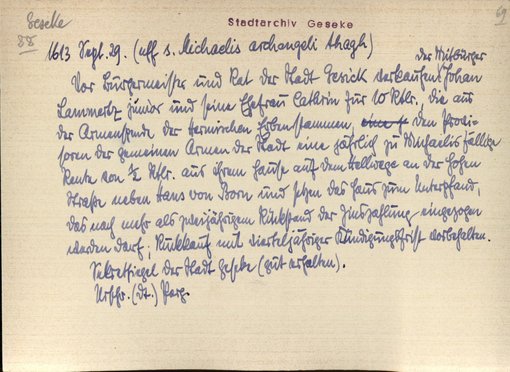 Geseke
88
Stadtarchiv Geseke
69
1613 Sept. 29. (uff s. Michaelis archangeli thagh)
der Mitbürger
Vor Bürgermeister und Rat der Stadt Gesick verkaufen Johan
Lammertz junior und seine Ehefrau Cathrin für 10 Rtlr., die aus
der Armenspende der Erbenstammen, den Provi-
soren der gemeinen Armen der Stadt eine jährlich zu Michaelis fällige
Rente von 1/2 Rtlr. aus ihrem Hause auf dem Hellwege an der hohen
Straße neben Hans von Born und setzen das Haus zum Unterpfand,
das nach mehr als zweijährigem Rückstand der Zinszahlung eingezogen
werden darf; Rückkauf mit vierteljähriger Kündigungsfrist vorbehalten.
Sekretsiegel der Stadt Geseke (gut erhalten).
Urschr. (dt.) Perg.